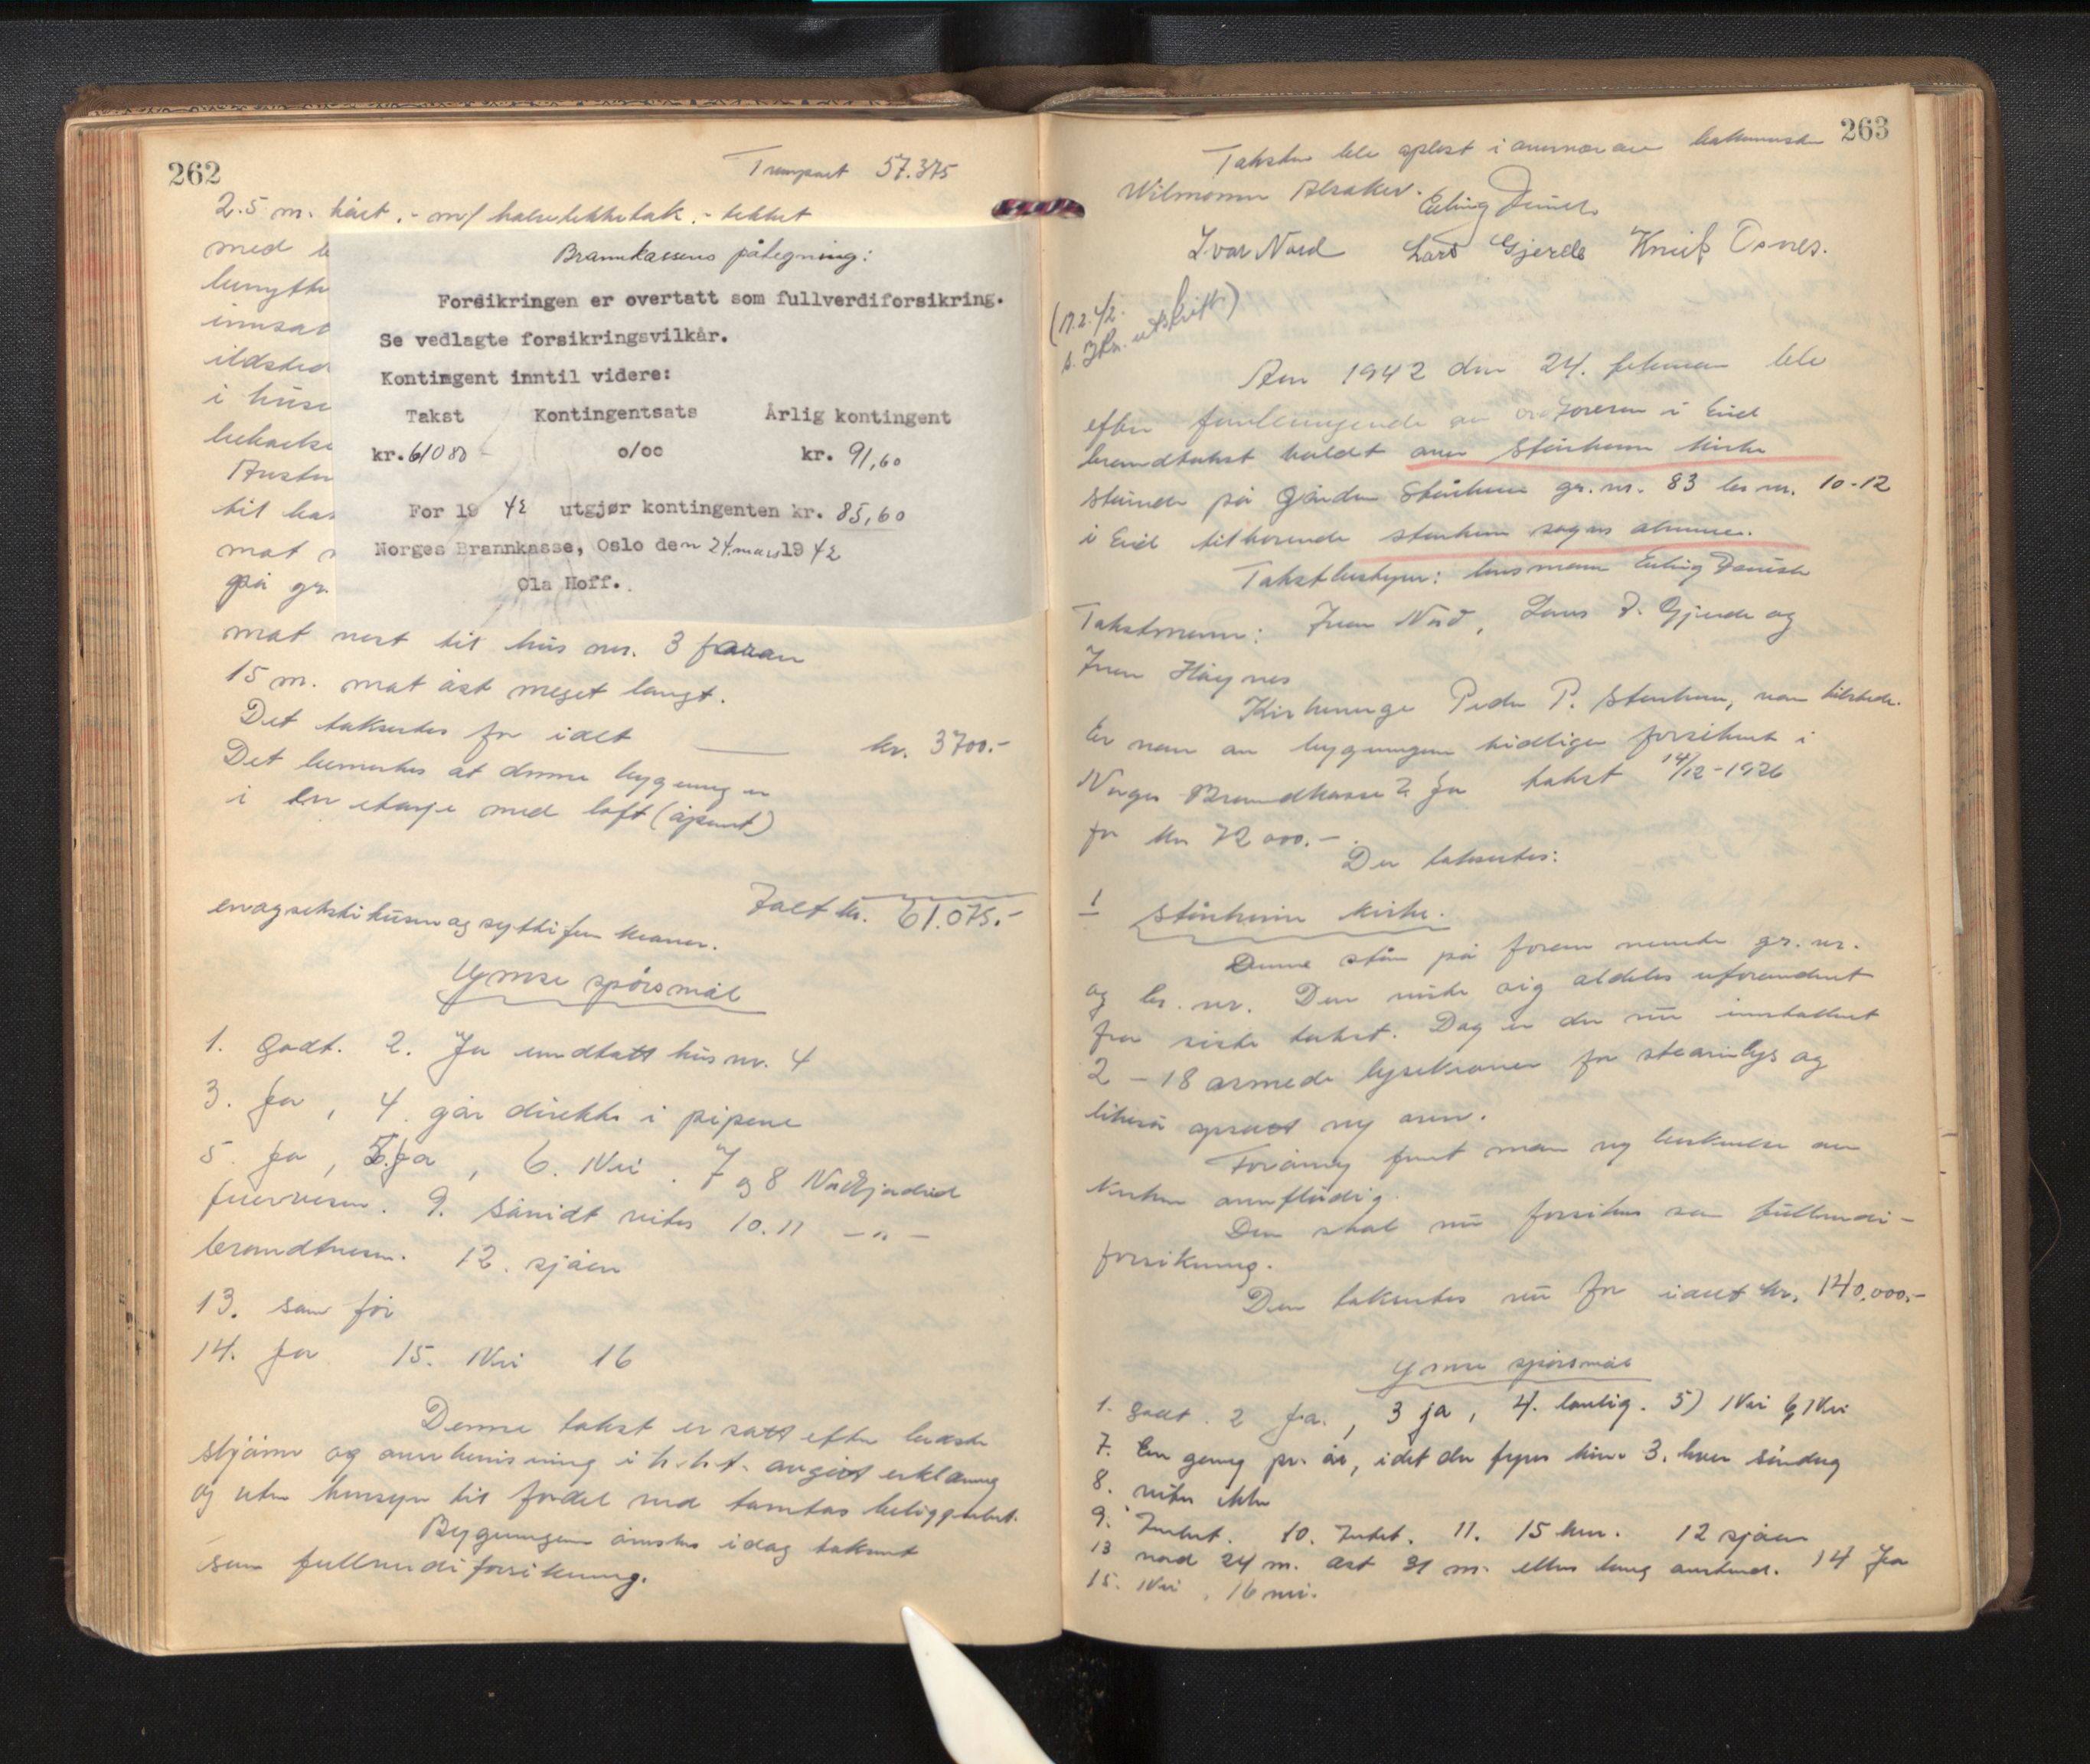 262
Transport 57.375
2.5 m. høit
med
benytte
innsat
ildsted
i huse
til
mat
på gr.
Brannkassens påtegning:
Forsikringen er overtatt som fullverdiforsikring.
Se vedlagte forsikringsvilkår.
Kontingent inntil videre:
Takst Kontingentsats Årlig kontingent
kr. 61080 o/oo kr. 91,60
For 19 42 utgjør kontingenten kr. 85,60
Norges Brannkasse, Oslo den 24. mars 19 42
Ola Hoff.
mot vest til hus nr. 3 foran
15 m. mot øst meget langt.
Det takseres for ialt kr. 3700.-
Det bemerkes at denne bygning er
i en etasje med loft (åpent)
Ialt kr. 61.075.-
enogsekstitusenogsyttifem kroner.
Ymse spørsmål
1. Godt. 2. Ja undtatt hus nr. 4
3. Ja, 4. går direkte i pipene
5. Ja, 5. Ja, 6. Nei. 7 og 8 Nordfjordeid
9. Såvidt vites 10. 11 -"-
12. sjøen
13. som før
14. Ja 15. Nei 16
Denne takst er satt efter beste
skjønn og overbevisning i h.h.t. avgitt erklæring
og uten hensyn til fordel ved tomtas beliggenhet.
Bygningene ønskes idag taksert
som fullverdiforsikring.
263
Taksten ble oplest i overvær av
Alsaker. Erling
Ivar Nord Lars Gjerde Knut Osnes.
utskrift)
Aar 1942 den 24. februar ble
efter forlangende av ordføreren i Eid
brandtakst holdt over Stårheim kirke
stående på gården Stårheim gr.nr. 83 br.nr. 10-12
i Eid tilhørende Stårheim sogns almue.
Takstbestyrer: lensmann Erling
Takstmenn: Ivar Nord, Lars J. Gjerde og
Ivar Haugnes
Kirkeverge Peder P. Stårheim, var tilstede.
Er noen av bygningene tidligere forsikret i
Norges Brandkasse? Ja takst 14/12-1926
for kr 72000.-
Der takseres:
1 Stårheim kirke.
Denne står på foran nevnte gr.nr.
og br.nr. Den viste sig aldeles uforandret
fra siste takst. Dog er der nu installert
2 - 18 armede lysekroner for stearinlys og
likeså opsatt ny ovn.
Forøvrig fant man ny beskrivelse av
kirken overflødig.
Den skal nu forsikres som fullverdi-
forsikring.
Den takseres nu for ialt kr. 140.000.-
Ymse spørsmål
1. Godt. 2 Ja., 3 ja, 4. 5) Nei 6, Nei
7. En gang pr. år, idet der fyres kun 3. hver søndag
8. vites ikke
9. Intet. 10. Intet. 11. 15 km. 12 sjøen
13 nord 24 m. øst 21 m. ellers lang avstand. 14 Ja
15. Nei, 16 nei.